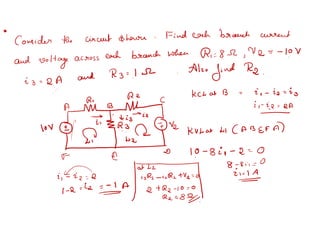 Consider the circuit shown. Find each branch current
and voltage across each branch when R₁ = 8Ω, V₂ = -10V
i₃ = 2A and R₃ = 1Ω. Also find R₂.
KCL at B = i₁ - i₂ = i₃
i₁ - i₂ = 2A
A R₁ B R₂ C
i₁ ↓i₃ i₂
10V R₃ V₂
L₁ L₂
F E D
KVL at L1 (ABEFA)
10 - 8i₁ - 2 = 0
8 - 8i₁ = 0
i₁ = 1A
i₁ - i₂ = 2
1 - 2 = i₂ = -1A
at L2
i₃R₃ - i₂R₂ + V₂ = 0
2 + R₂ - 10 = 0
R₂ = 8Ω